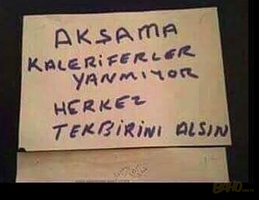 AKSAMA
KALERİFERLER
YANMIYOR
HERKEZ
TEKBİRİNİ ALSIN